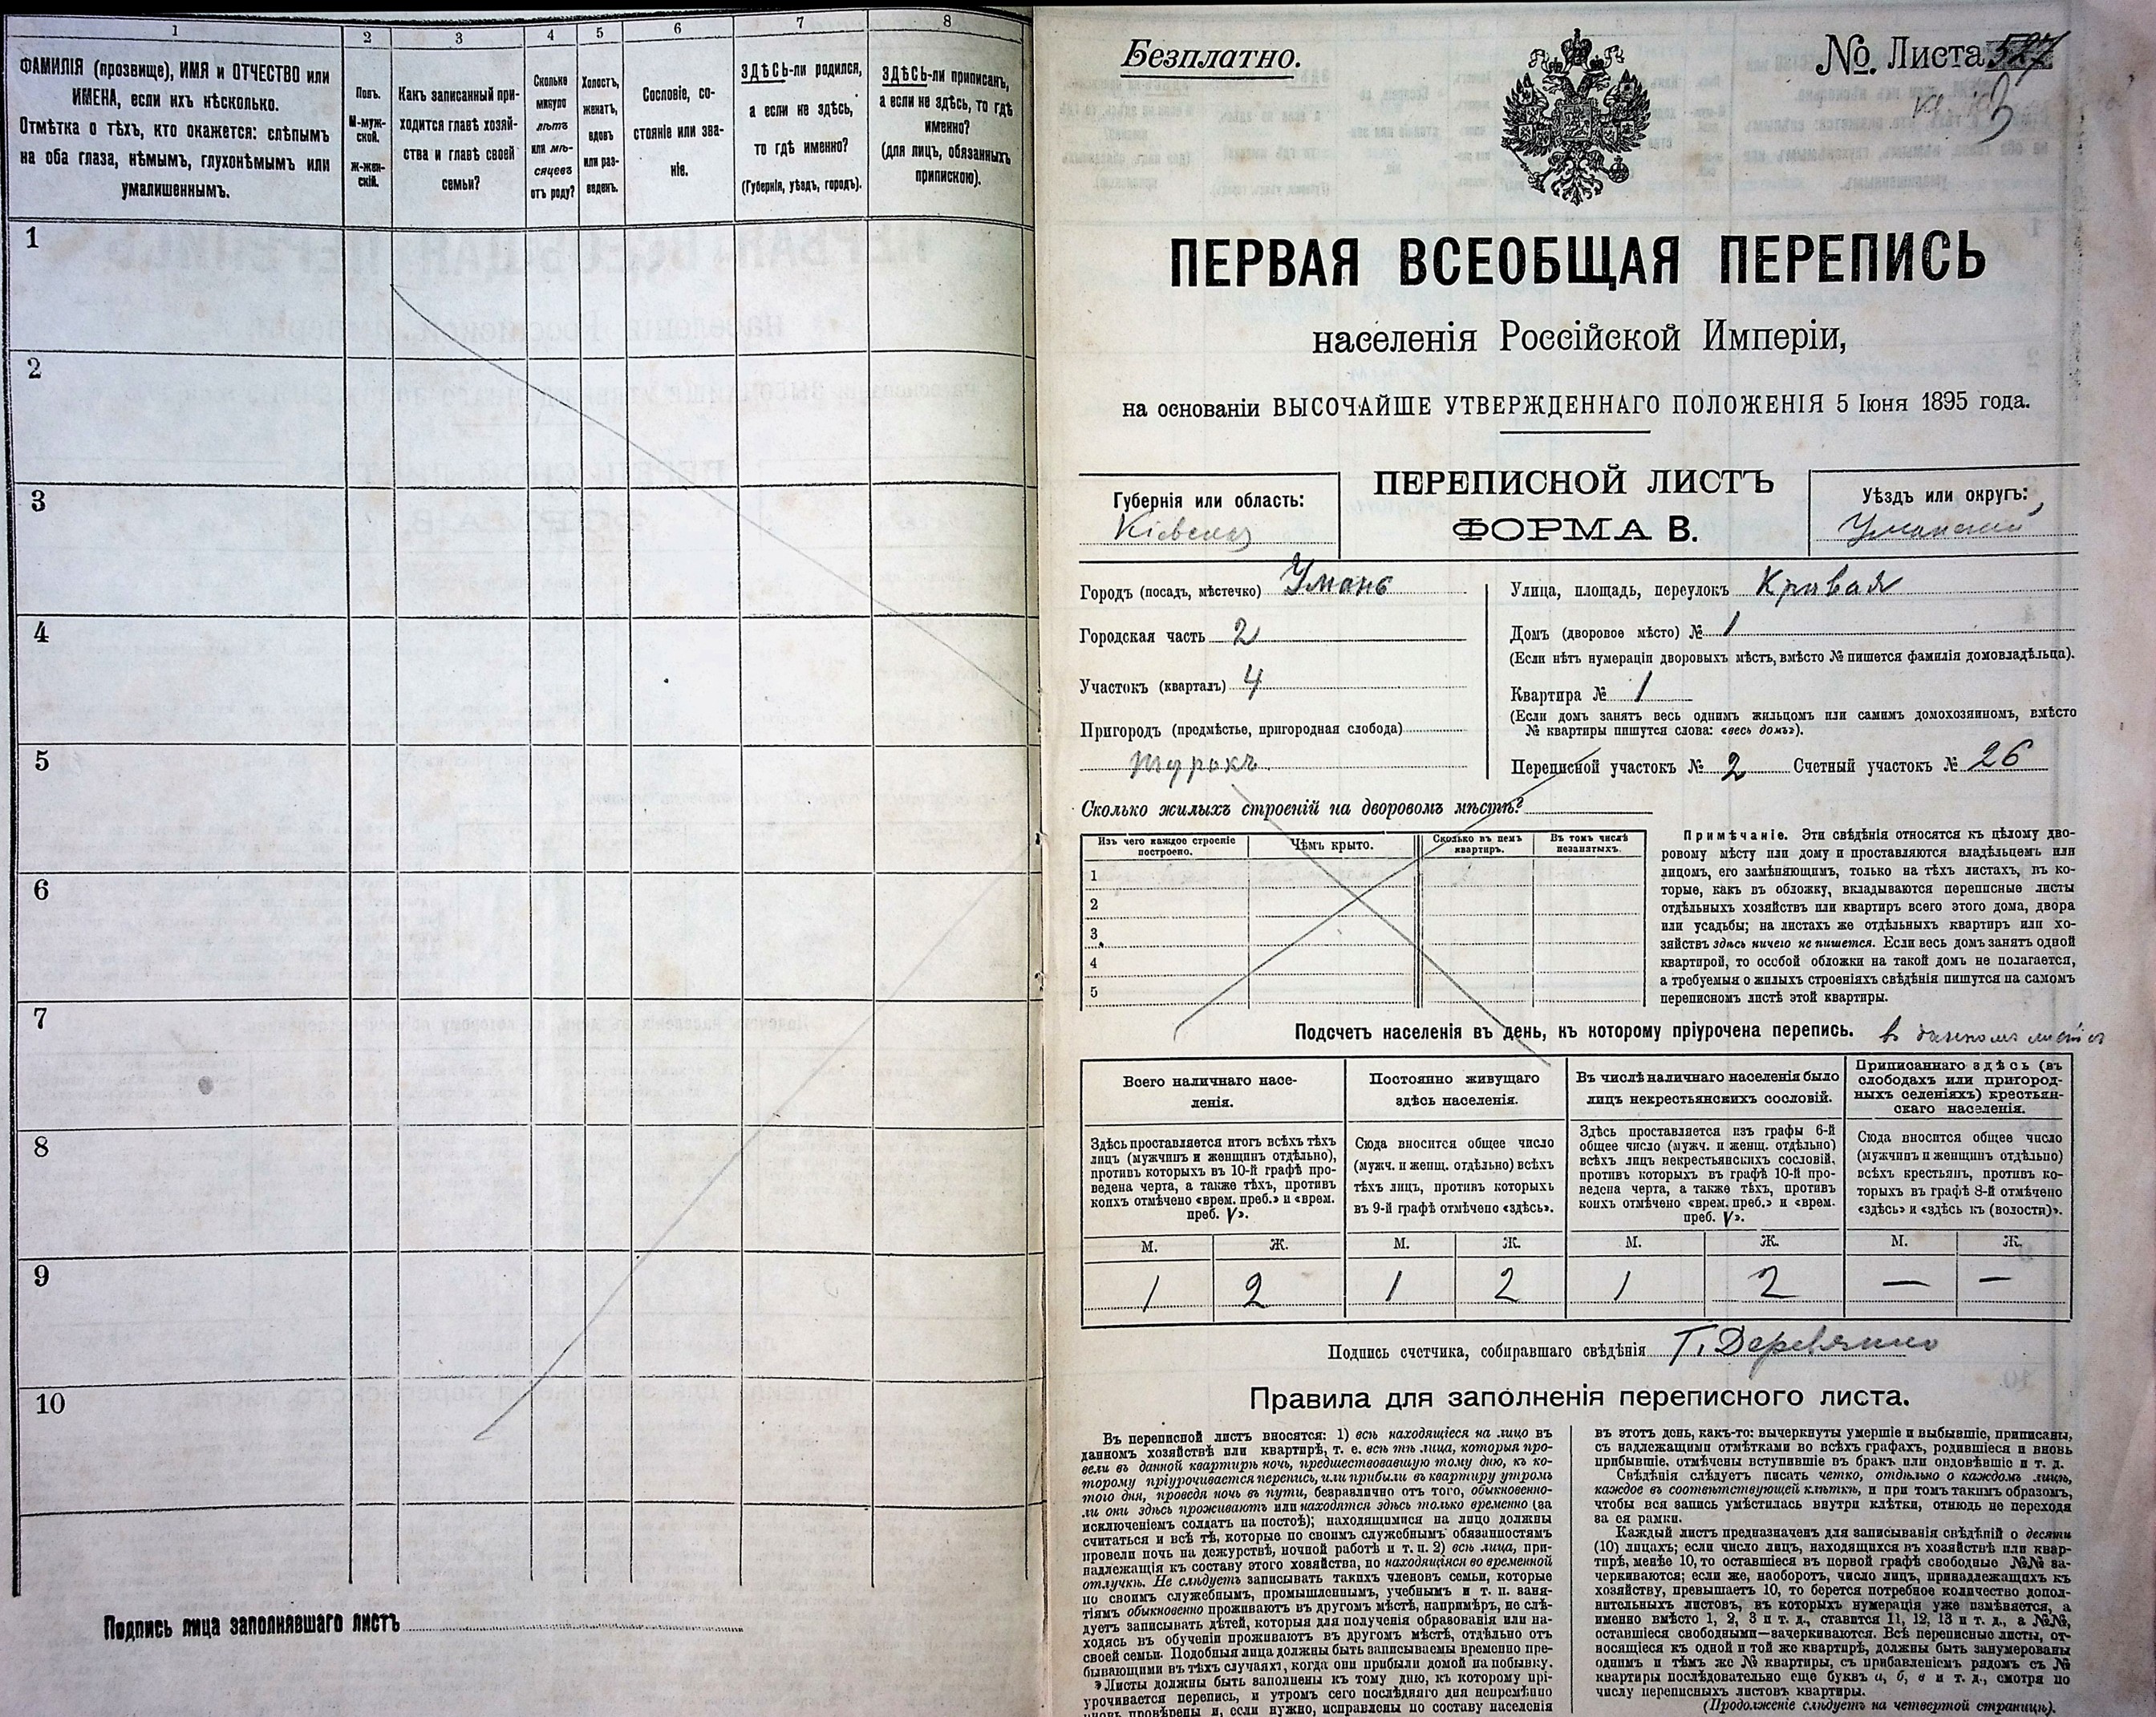 1 2 3 4 5 6 7 8
ФАМИЛІЯ (прозвище), ИМЯ и ОТЧЕСТВО или
ИМЕНА, если ихъ нѣсколько.
Отмѣтка о тѣхъ, кто окажется: слѣпымъ
на оба глаза, нѣмымъ, глухонѣмымъ или
умалишеннымъ.
Полъ.
М-муж-
ской.
Ж-жен-
скій.
Какъ записанный при-
ходится главѣ хозяй-
ства и главѣ своей
семьи?
Сколько
минуло
лѣтъ
или мѣ-
сяцевъ
отъ роду?
Холостъ,
женатъ,
вдовъ
или раз-
веденъ.
Сословіе, со-
стояніе или зва-
ніе.
ЗДѢСЬ-ли родился,
а если не здѣсь,
то гдѣ именно?
(Губернія, уѣздъ, городъ).
ЗДѢСЬ-ли приписанъ,
а если не здѣсь, то гдѣ
именно?
(для лицъ, обязанныхъ
припискою).
1
2
3
4
5
6
7
8
9
10
Подпись лица заполнявшаго листъ
Безплатно.
№. Листа
ПЕРВАЯ ВСЕОБЩАЯ ПЕРЕПИСЬ
населенія Россійской Имперіи,
на основаніи ВЫСОЧАЙШЕ УТВЕРЖДЕННАГО ПОЛОЖЕНІЯ 5 Іюня 1895 года.
Губернія или область:
Кіевская
ПЕРЕПИСНОЙ ЛИСТЪ
ФОРМА В.
Уѣздъ или округъ:
Уманскій
Городъ (посадъ, мѣстечко) Умань
Городская часть 2
Участокъ (кварталъ) 4
Пригородъ (предмѣстье, пригородная слобода)
Турокъ
Улица, площадь, переулокъ Кривая
Домъ (дворовое мѣсто) № 1
(Если нѣтъ нумераціи дворовыхъ мѣстъ, вмѣсто № пишется фамилія домовладѣльца).
Квартира № 1
(Если домъ занятъ весь однимъ жильцомъ или самимъ домохозяиномъ, вмѣсто
№ квартиры пишутся слова: «весь домъ»).
Переписной участокъ № 2 Счетный участокъ № 26
Сколько жилыхъ строеній на дворовомъ мѣстѣ?
Изъ чего каждое строеніе
построено.
Чѣмъ крыто.
Сколько въ немъ
квартиръ.
Въ томъ числѣ
незанятыхъ.
1
2
3
4
5
Примѣчаніе. Эти свѣдѣнія относятся къ цѣлому дво-
ровому мѣсту или дому и проставляются владѣльцемъ или
лицомъ, его замѣняющимъ, только на тѣхъ листахъ, въ ко-
торые, какъ въ обложку, вкладываются переписные листы
отдѣльныхъ хозяйствъ или квартиръ всего этого дома, двора
или усадьбы; на листахъ же отдѣльныхъ квартиръ или хо-
зяйствъ здѣсь ничего не пишется. Если весь домъ занятъ одной
квартирой, то особой обложки на такой домъ не полагается,
а требуемыя о жилыхъ строеніяхъ свѣдѣнія пишутся на самомъ
переписномъ листѣ этой квартиры.
Подсчетъ населенія въ день, къ которому пріурочена перепись.
Всего наличнаго насе-
ленія.
Постоянно живущаго
здѣсь населенія.
Въ числѣ наличнаго населенія было
лицъ некрестьянскихъ сословій.
Приписаннаго здѣсь (въ
слободахъ или пригород-
ныхъ селеніяхъ) крестьян-
скаго населенія.
Здѣсь проставляется итогъ всѣхъ тѣхъ
лицъ (мужчинъ и женщинъ отдѣльно),
противъ которыхъ въ 10-й графѣ про-
ведена черта, а также тѣхъ, противъ
коихъ отмѣчено «врем. преб.» и «врем.
преб. V».
Сюда вносится общее число
(мужч. и женщ. отдѣльно) всѣхъ
тѣхъ лицъ, противъ которыхъ
въ 9-й графѣ отмѣчено «здѣсь».
Здѣсь проставляется изъ графы 6-й
общее число (мужч. и женщ. отдѣльно)
всѣхъ лицъ некрестьянскихъ сословій,
противъ которыхъ въ графѣ 10-й про-
ведена черта, а также тѣхъ, противъ
коихъ отмѣчено «врем. преб.» и «врем.
преб. V».
Сюда вносится общее число
(мужчинъ и женщинъ отдѣльно)
всѣхъ крестьянъ, противъ ко-
торыхъ въ графѣ 8-й отмѣчено
«здѣсь» и «здѣсь къ (волости)».
М. Ж. М. Ж. М. Ж. М. Ж.
1 2 1 2 1 2 — —
Подпись счетчика, собиравшаго свѣдѣнія Т. Деревянко
Правила для заполненія переписного листа.
Въ переписной листъ вносятся: 1) всѣ находящіеся на лицо въ
данномъ хозяйствѣ или квартирѣ, т. е. всѣ тѣ лица, которыя про-
вели въ данной квартирѣ ночь, предшествовавшую тому дню, къ ко-
торому пріурочивается перепись, или прибыли въ квартиру утромъ
того дня, проведя ночь въ пути, безразлично отъ того, обыкновенно-
ли они здѣсь проживаютъ или находятся здѣсь только временно (за
исключеніемъ солдатъ на постоѣ); находящимися на лицо должны
считаться и всѣ тѣ, которые по своимъ служебнымъ обязанностямъ
провели ночь на дежурствѣ, ночной работѣ и т. п. 2) всѣ лица, при-
надлежащія къ составу этого хозяйства, но находящіяся во временной
отлучкѣ. Не слѣдуетъ записывать такихъ членовъ семьи, которые
по своимъ служебнымъ, промышленнымъ, учебнымъ и т. п. заня-
тіямъ обыкновенно проживаютъ въ другомъ мѣстѣ, напримѣръ, не слѣ-
дуетъ записывать дѣтей, которыя для полученія образованія или на-
ходясь въ обученіи проживаютъ въ другомъ мѣстѣ, отдѣльно отъ
своей семьи. Подобныя лица должны быть записываемы временно пре-
бывающими въ тѣхъ случаяхъ, когда они прибыли домой на побывку.
Листы должны быть заполнены къ тому дню, къ которому прі-
урочивается перепись, и утромъ сего послѣдняго дня непремѣнно
вновь провѣрены и, если нужно, исправлены по составу населенія
въ этотъ день, какъ-то: вычеркнуты умершіе и выбывшіе, приписаны,
съ надлежащими отмѣтками во всѣхъ графахъ, родившіеся и вновь
прибывшіе, отмѣчены вступившіе въ бракъ или овдовѣвшіе и т. д.
Свѣдѣнія слѣдуетъ писать четко, отдѣльно о каждомъ лицѣ,
каждое въ соотвѣтствующей клѣткѣ, и при томъ такимъ образомъ,
чтобы вся запись умѣстилась внутри клѣтки, отнюдь не переходя
за ея рамки.
Каждый листъ предназначенъ для записыванія свѣдѣній о десяти
(10) лицахъ; если число лицъ, находящихся въ хозяйствѣ или квар-
тирѣ, менѣе 10, то оставшіеся въ первой графѣ свободные №№ за-
черкиваются; если же, наоборотъ, число лицъ, принадлежащихъ къ
хозяйству, превышаетъ 10, то берется потребное количество допол-
нительныхъ листовъ, въ которыхъ нумерація уже измѣняется, а
именно вмѣсто 1, 2, 3 и т. д., ставится 11, 12, 13 и т. д., а №№,
оставшіеся свободными—зачеркиваются. Всѣ переписные листы, от-
носящіеся къ одной и той же квартирѣ, должны быть занумерованы
однимъ и тѣмъ же № квартиры, съ прибавленіемъ рядомъ съ №
квартиры послѣдовательно еще буквъ а, б, в и т. д., смотря по
числу переписныхъ листовъ квартиры.
(Продолженіе слѣдуетъ на четвертой страницѣ).